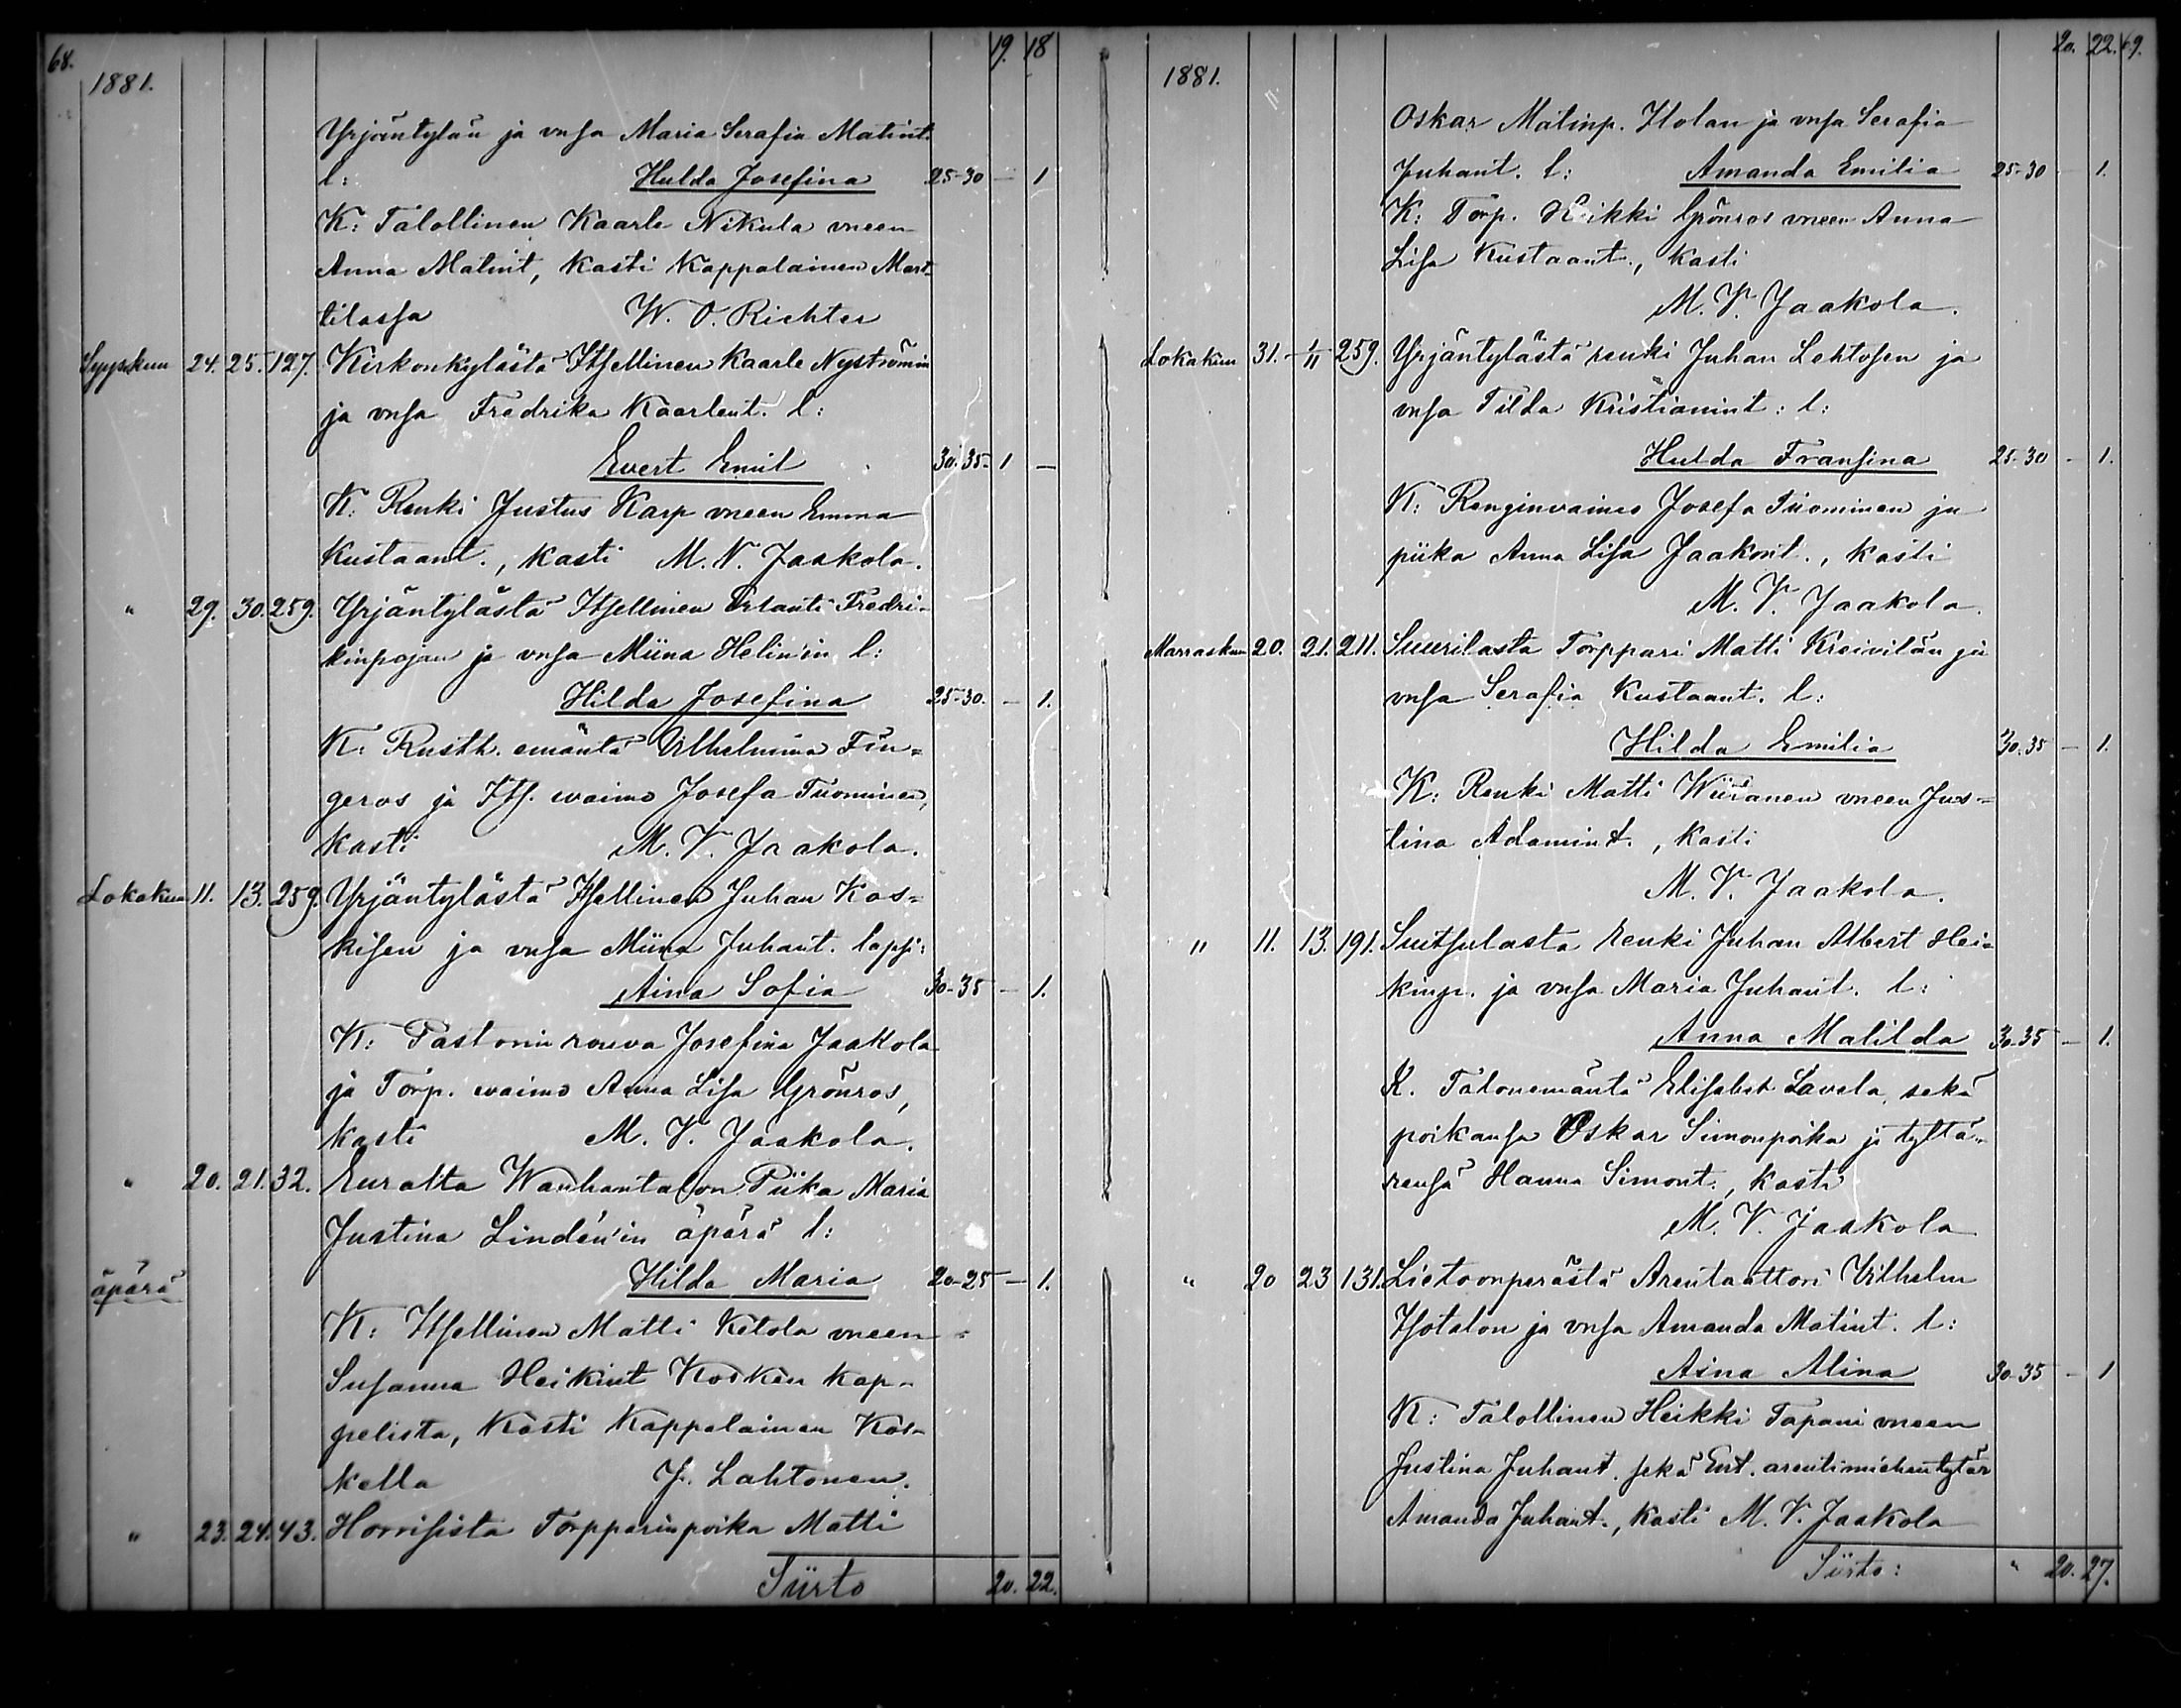 68. 19. 18
1881.
Yrjäntylän ja vnsa Maria Serafia Matint.
l: Hulda Josefina 25-30 — 1
K: Talollinen Kaarle Nikula vneen
Anna Matint, kasti Kappalainen Mart-
tilassa W. O. Richter
Syyskuu 24. 25. 127. Kirkonkylästä Itsellinen Kaarle Nyströmin
ja vnsa Fredrika Kaarlent. l:
Evert Emil 30-35- 1 —
K: Renki Justus Karp vneen Emma
Kustaant., kasti M. V. Jaakola.
" 29. 30. 259. Yrjäntylästä Itsellinen Erlanti Fredri-
kinpojan ja vnsa Miina Helin'in l:
Hilda Josefina 25-30. — 1.
K: Rusth. emäntä Vilhelmina Fin-
geros ja Its. waimo Josefa Tuominen,
kasti M. V. Jaakola.
Lokakuu 11. 13. 259. Yrjäntylästä Itsellinen Juhan Kos-
kisen ja vnsa Miina Juhant. lapsi:
Aina Sofia 30-35 — 1.
K: Pastorin rouva Josefina Jaakola
ja Torp. waimo Anna Lisa Grönros,
kasti M. V. Jaakola.
" 20. 21. 32. Euralta Wanhantalon Piika Maria
Justina Lindén'in äpärä l:
äpärä Hilda Maria 20-25 — 1.
K: Itsellinen Matti Ketola vneen
Susanna Heikint Kosken kap-
pelista, Kasti Kappalainen Kos-
kella J. Lahtonen.
" 23. 24. 43. Horrisista Torpparinpoika Matti
Siirto 20. 22.
20. 22. 69.
1881.
Oskar Matinp. Ilolan ja vnsa Serafia
Juhant. l: Amanda Emilia 25-30 — 1.
K: Torp. Heikki Grönros vneen Anna
Lisa Kustaant., kasti
M. V. Jaakola.
Lokakuu 31. 1/11 259. Yrjäntylästä renki Juhan Lehtosen ja
vnsa Tilda Kristianint: l:
Hulda Fransina 25-30 — 1.
K: Renginvaimo Josefa Tuominen ja
piika Anna Lisa Jaakont., kasti
M. V. Jaakola.
Marraskuu 20. 21. 211. Suurilasta Torppari Matti Kreivilän ja
vnsa Serafia Kustaant. l:
Hilda Emilia 30-35 — 1.
K: Renki Matti Wiiranen vneen Jus-
tina Adamint., kasti
M. V. Jaakola.
" 11. 13. 191. Suitsulasta renki Juhan Albert Hei-
kinp. ja vnsa Maria Juhant. l:
Anna Matilda 30-35 — 1.
K. Talonemäntä Elisabet Lavela, sekä
poikansa Oskar Simonpoika ja tyttä-
rensä Hanna Simont., kasti
M. V. Jaakola
" 20 23 131. Lietoonperästä Arentaattori Vilhelm
Isotalon ja vnsa Amanda Matint. l:
Aina Alina 30-35 — 1
K: Talollinen Heikki Tapani vneen
Justina Juhant. sekä Ent. arentimiehentytär
Amanda Juhant., kasti M. V. Jaakola
Siirto: " 20. 27.